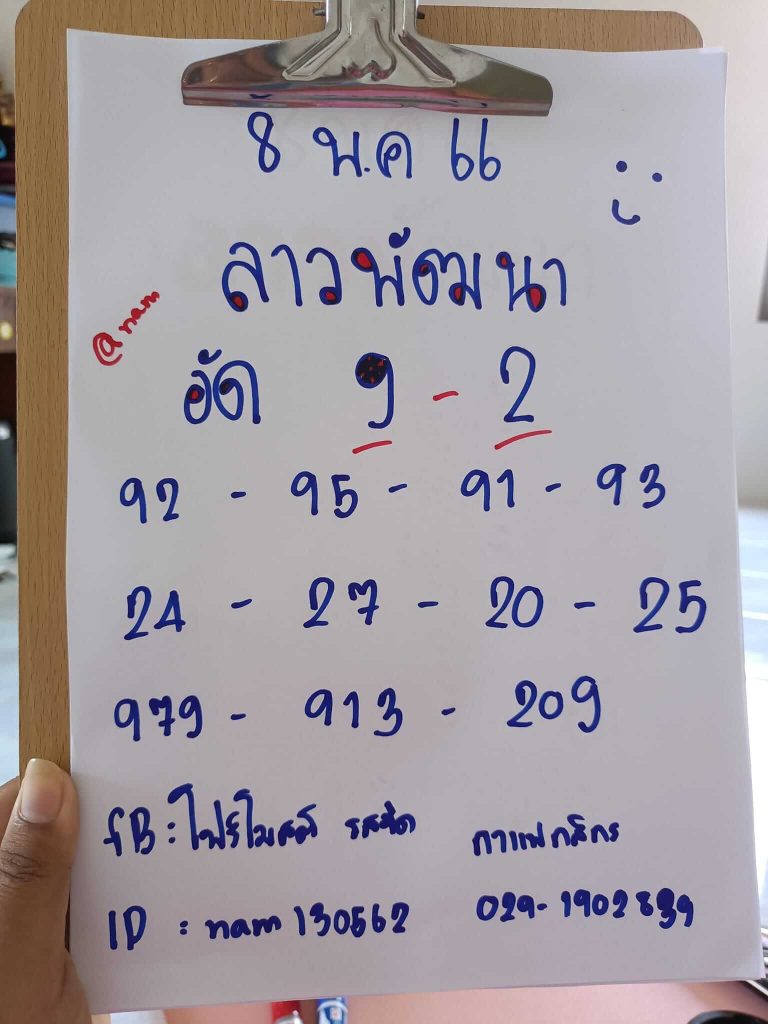 8 พ.ค 66
ลาวพัฒนา
@nam
อัด 9 - 2
92 - 95 - 91 - 93
24 - 27 - 20 - 25
979 - 913 - 209
fB : โฟร์โมสต์ รสจืด
กาแฟกสิกร
ID : nam 130562
029-1902839